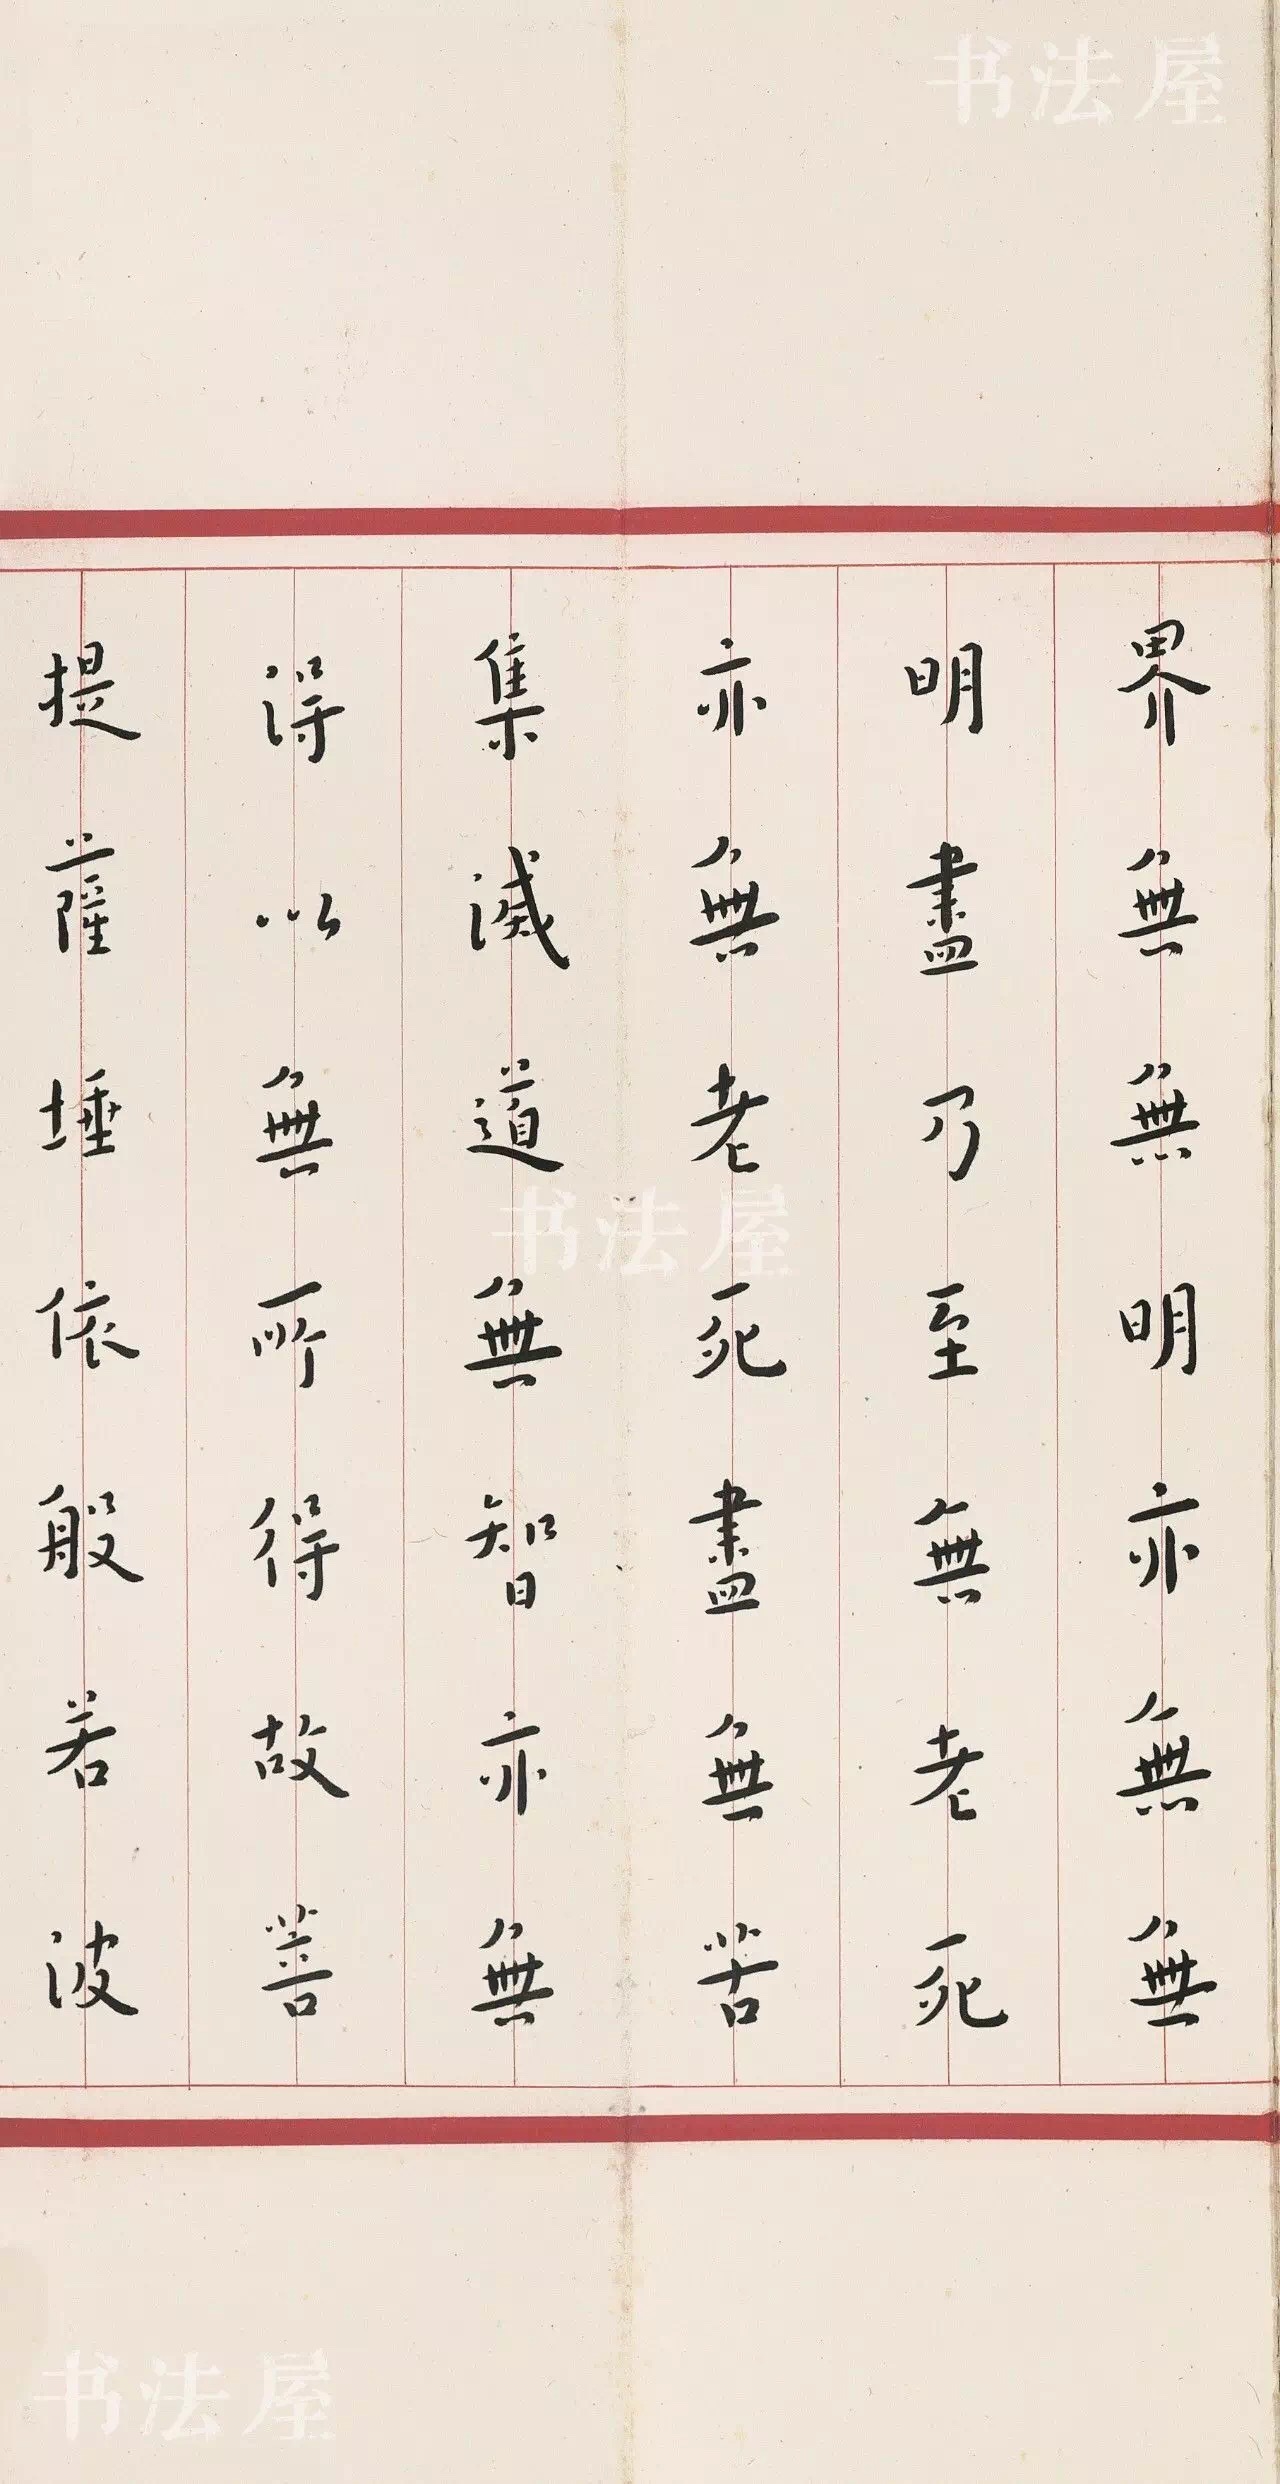 书法屋
界無無明亦無無
明盡乃至無老死
亦無老死盡無苦
集滅道無智亦無
得以無所得故菩
提薩埵依般若波
书法屋
书法屋